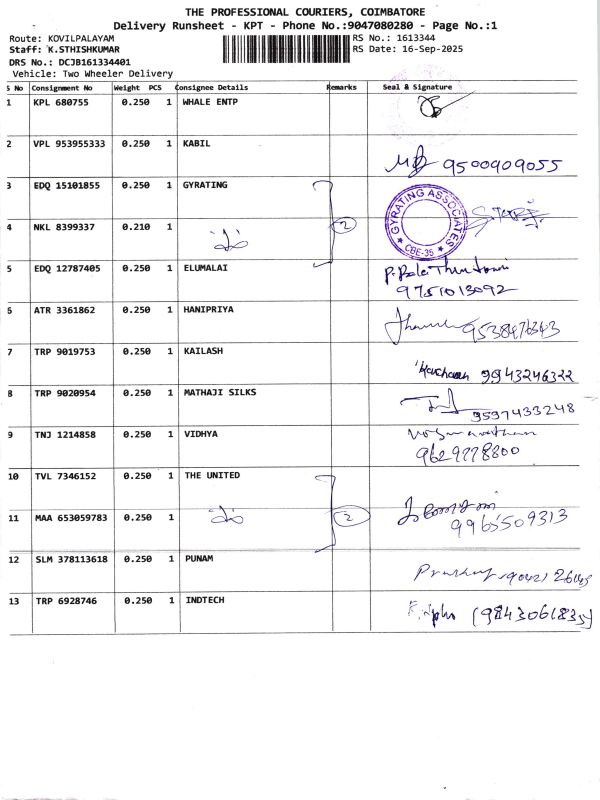 THE PROFESSIONAL COURIERS, COIMBATORE
Delivery Runsheet - KPT - Phone No.:9047080280 - Page No.:1
Route: KOVILPALAYAM RS No.: 1613344
Staff: K.STHISHKUMAR RS Date: 16-Sep-2025
DRS No.: DCJB161334401
Vehicle: Two Wheeler Delivery
S No Consignment No Weight PCS Consignee Details Remarks Seal & Signature
1 KPL 680755 0.250 1 WHALE ENTP
2 VPL 953955333 0.250 1 KABIL
9500909055
3 EDQ 15101855 0.250 1 GYRATING
GYRATING ASSOCIATES
★ CBE-35 ★
4 NKL 8399337 0.210 1 2
5 EDQ 12787405 0.250 1 ELUMALAI
9751013092
6 ATR 3361862 0.250 1 HANIPRIYA
9538476343
7 TRP 9019753 0.250 1 KAILASH
9943246322
8 TRP 9020954 0.250 1 MATHAJI SILKS
9597433248
9 TNJ 1214858 0.250 1 VIDHYA
9629778800
10 TVL 7346152 0.250 1 THE UNITED
11 MAA 653059783 0.250 1 2
9965509313
12 SLM 378113618 0.250 1 PUNAM
13 TRP 6928746 0.250 1 INDTECH
(9843061835)